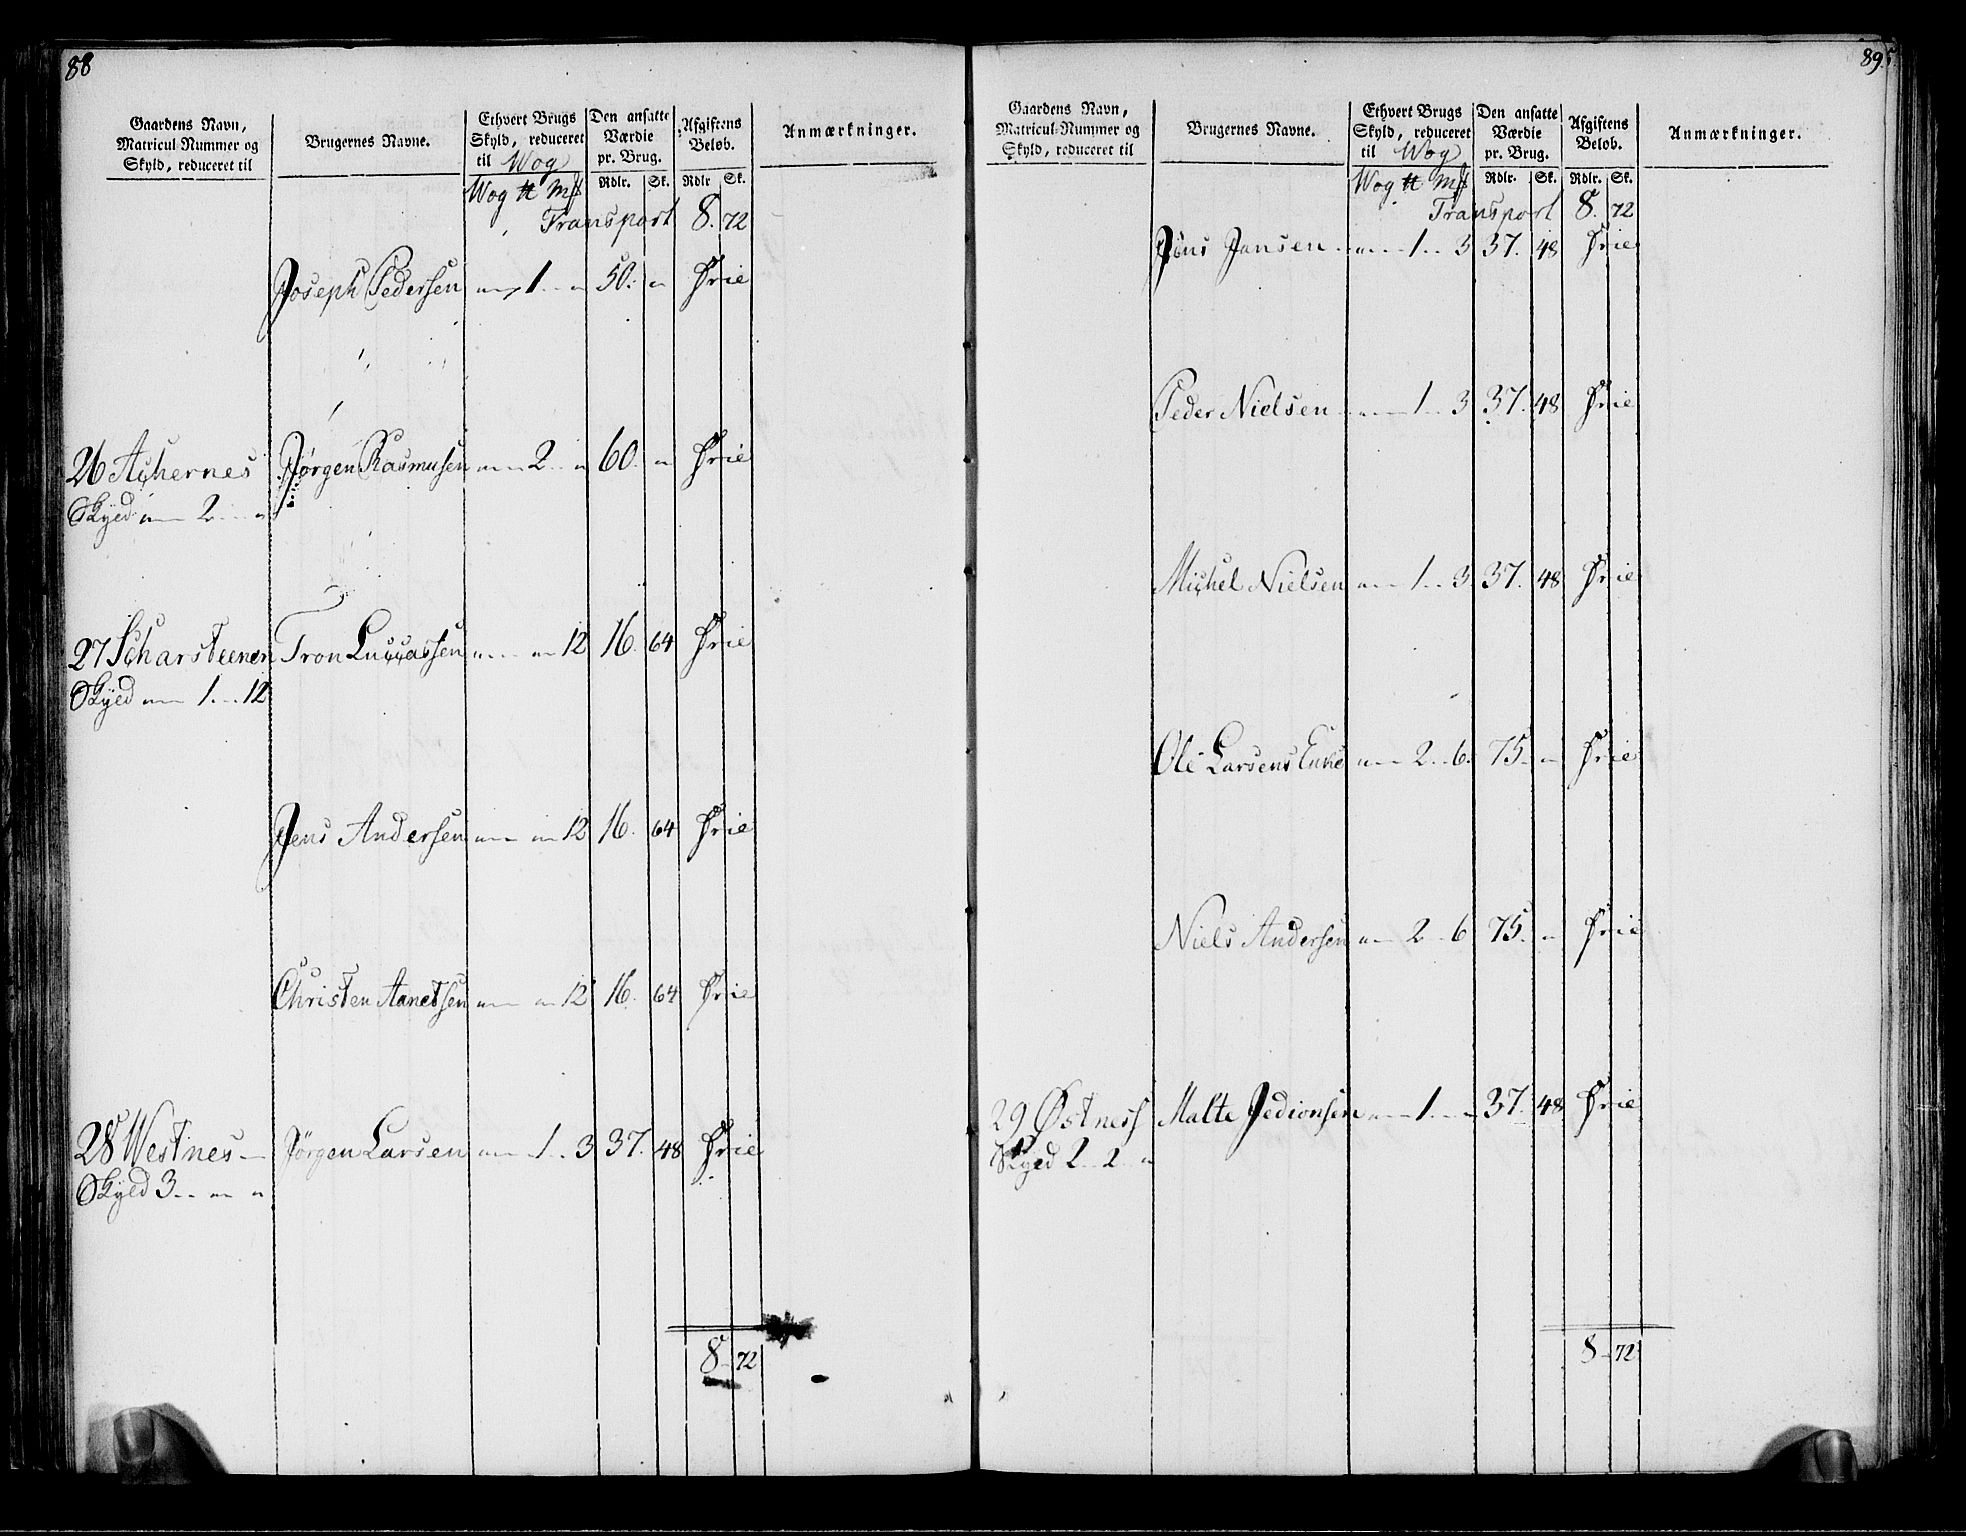 88
Gaardens Navn,
Matricul-Nummer og
Skyld, reduceret til
Brugernes Navne.
Ethvert Brugs
Skyld, reduceret
til Wog
Den ansatte
Værdie
pr. Brug.
Afgiftens
Beløb.
Anmærkninger.
Wog ℔ Mk
Rdlr. Sk. Rdlr Sk.
Transport 8. 72
Joseph Pedersen „ 1 „ 50. „ Frie
26 Achernes Jørgen Rasmusen „ 2 „ 60. „ Frie
Skyld „ 2 „
27 Scharsteenen Tron Luccassen „ „ 12 16. 64 Frie
Skyld „ 1 12
Jens Andersen „ „ 12 16. 64 Frie
Christen Aanetsen „ „ 12 16. 64 Frie
28 Westnes Jørgen Larsen „ 1 3 37. 48 Frie
Skyld 3 „ „
8 72
89
Gaardens Navn,
Matricul-Nummer og
Skyld, reduceret til
Brugernes Navne.
Ethvert Brugs
Skyld, reduceret
til Wog
Den ansatte
Værdie
pr. Brug.
Afgiftens
Beløb.
Anmærkninger.
Wog ℔ Mk
Rdlr. Sk. Rdlr. Sk.
Transport 8. 72
Jens Jansen „ 1 3 37. 48 Frie
Peder Nielsen „ 1 3 37. 48 Frie
Michel Nielsen „ 1 3 37. 48 Frie
Ole Larsens Enke „ 2 6. 75 „ Frie
Niels Andersen „ 2 6 75. „ Frie
29 Østness Malte Jedionsen „ 1 „ 37. 48 Frie
Skyld 2 2 „
8 72